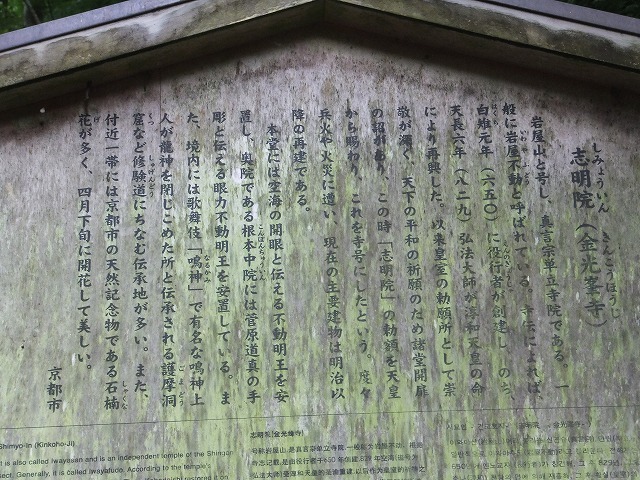 志明院（金光峯寺）
しみょういん
きんこうほうじ
岩屋山と号し、真言宗単立寺院である。一
般に岩屋不動と呼ばれている。寺伝によれば、
白雉元年（六五〇）に役行者が創建し、のち、
天長六年（八二九）弘法大師が淳和天皇の命
により再興した。以来皇室の勅願所として崇
敬が深く、天下の平和の祈願のため諸堂開扉
の報があり、この時「志明院」の勅額を天皇
から賜わり、これを寺号にしたという。度々
兵火や火災に遭い、現在の主要建物は明治以
降の再建である。
本堂には空海の開眼と伝える不動明王を安
置し、奥院である根本中院には菅原道真の手
彫と伝える眼力不動明王を安置している。ま
た、境内には歌舞伎「鳴神」で有名な鳴神上
人が龍神を閉じこめた所と伝承される護摩洞
窟など修験道にちなむ伝承地が多い。また、
付近一帯には京都市の天然記念物である石楠
花が多く、四月下旬に開花して美しい。
京都市
Shimyo-in (Kinkoho-Ji)
It is also called Iwayasan and is an independent temple of the Shingon
sect. Generally, it is called Iwayafudo. According to the temple's
志明院(金光峰寺)
号称岩屋山,是真言宗单立寺院,一般称为岩屋不动。根据